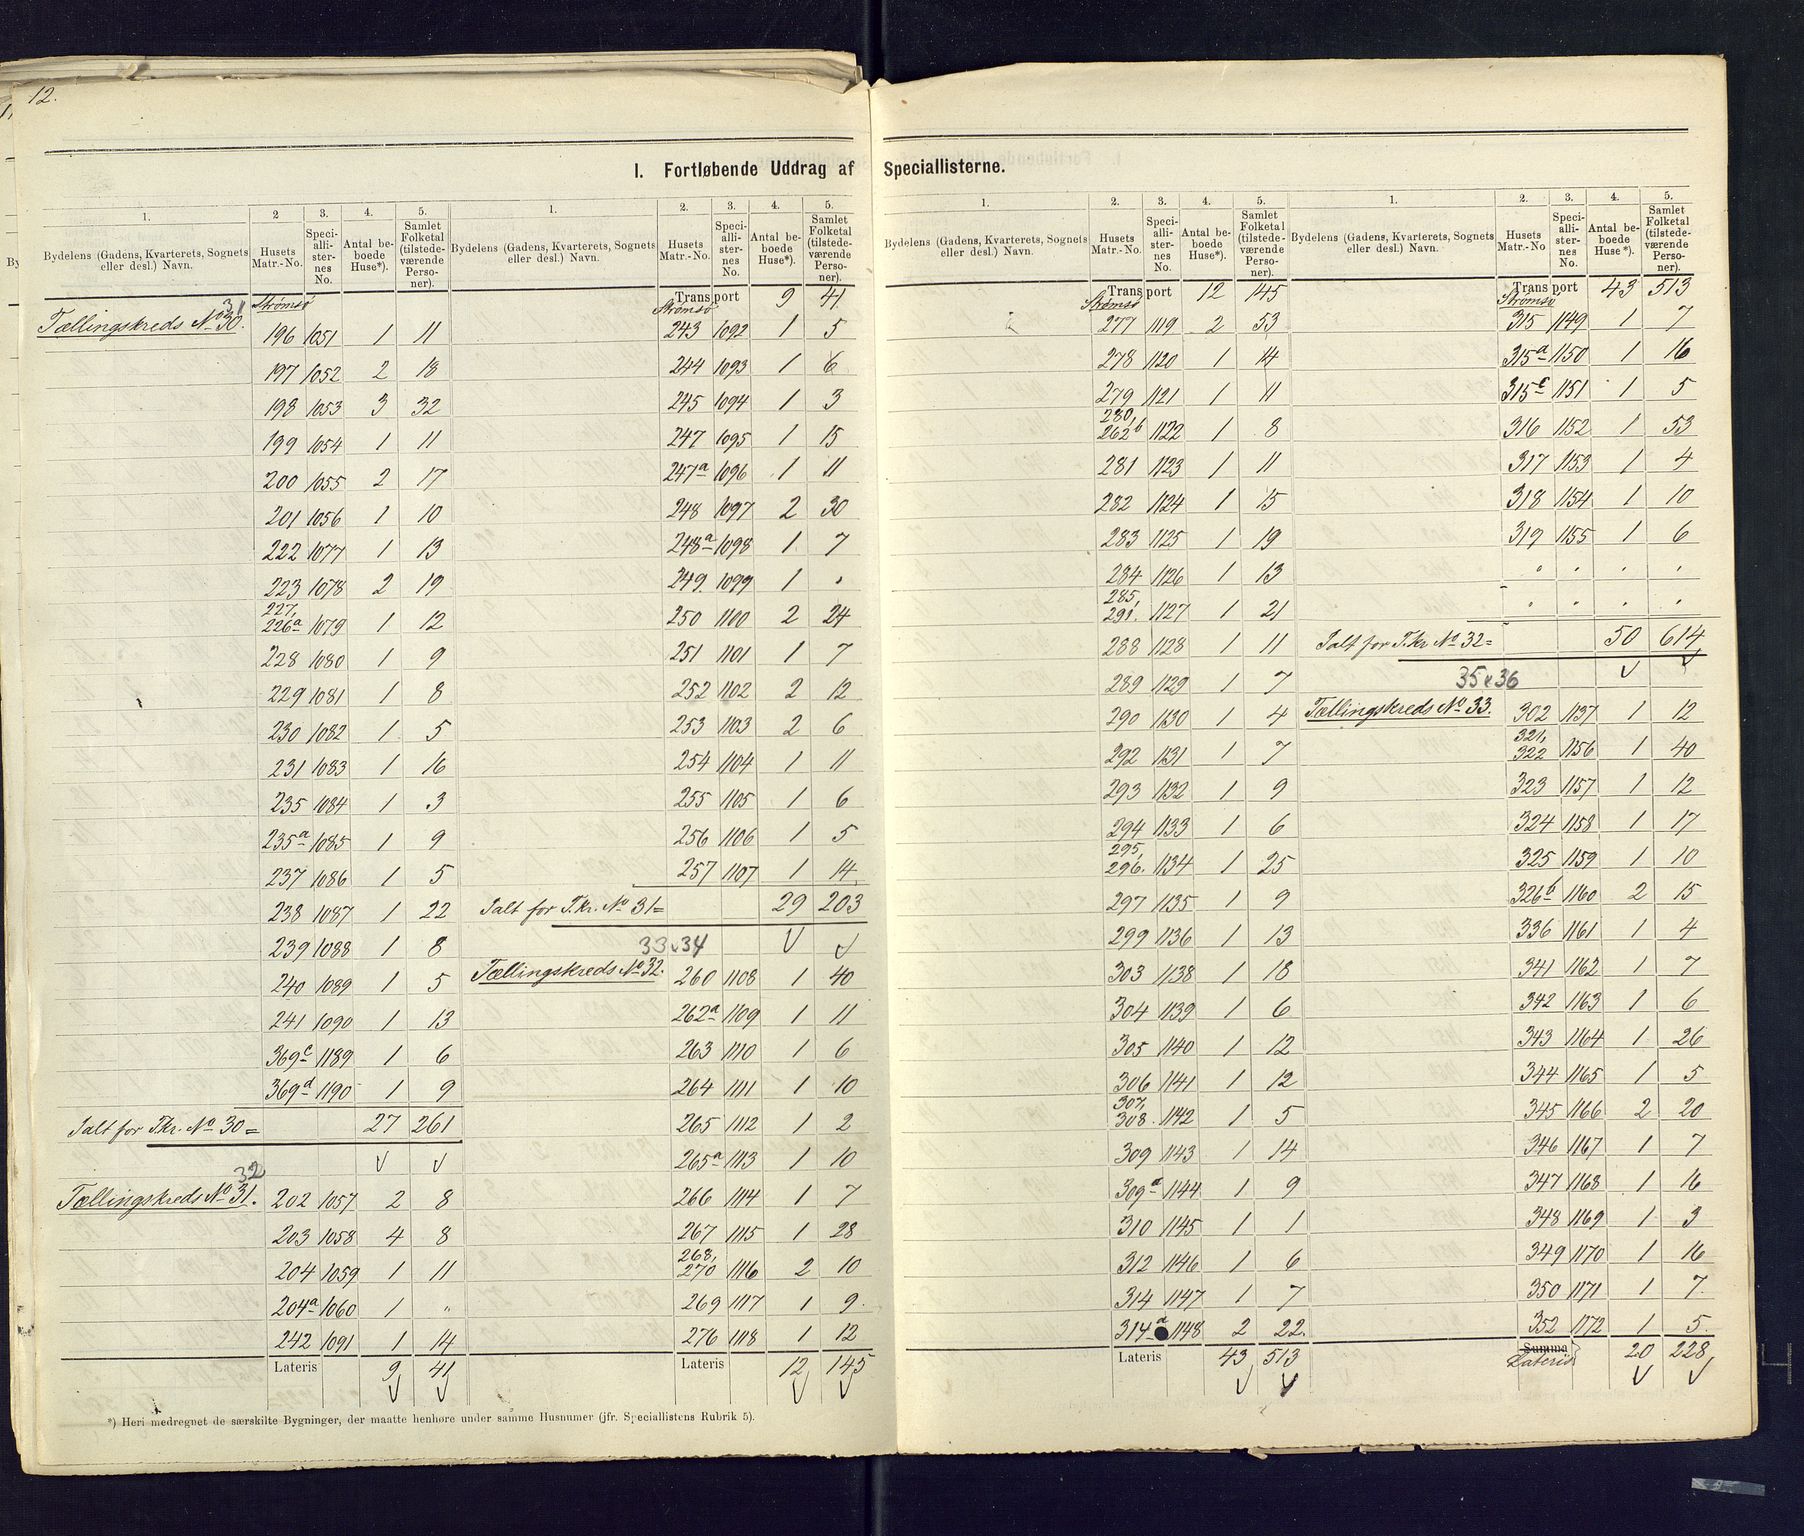 12.
I. Fortløbende Uddrag af Speciallisterne.
1. 2 3. 4. 5.
Bydelens (Gadens, Kvarterets, Sognets eller desl.) Navn. Husets Matr.-No. Speciallisternes No. Antal beboede Huse*). Samlet Folketal (tilstedeværende Personer).
Strømsø
31
Tællingskreds No 30. 196 1051 1 11
197 1052 2 18
198 1053 3 32
199 1054 1 11
200 1055 2 17
201 1056 1 10
222 1077 1 13
223 1078 2 19
227,
226a 1079 1 12
228 1080 1 9
229 1081 1 8
230 1082 1 5
231 1083 1 16
235 1084 1 3
235a 1085 1 9
237 1086 1 5
238 1087 1 22
239 1088 1 8
240 1089 1 5
241 1090 1 13
369c 1189 1 6
369d 1190 1 9
Ialt for Tkr. No 30 = 27 261
32
Tællingskreds No 31. 202 1057 2 8
203 1058 4 8
204 1059 1 11
204a 1060 1 "
242 1091 1 14
Lateris 9 41
1. 2. 3. 4. 5.
Bydelens (Gadens, Kvarterets, Sognets eller desl.) Navn. Husets Matr.-No. Speciallisternes No. Antal beboede Huse*). Samlet Folketal (tilstedeværende Personer).
Transport 9 41
Strømsø
243 1092 1 5
244 1093 1 6
245 1094 1 3
247 1095 1 15
247a 1096 1 11
248 1097 2 30
248a 1098 1 7
249. 1099 1 .
250 1100 2 24
251 1101 1 7
252 1102 2 12
253 1103 2 6
254 1104 1 11
255 1105 1 6
256 1106 1 5
257 1107 1 14
Ialt for T.kr. No 31 = 29 203
33 & 34
Tællingskreds No 32. 260 1108 1 40
262a 1109 1 11
263 1110 1 6
264 1111 1 10
265 1112 1 2
265a 1113 1 10
266 1114 1 7
267 1115 1 28
268,
270 1116 2 10
269 1117 1 9.
276 1118 1 12
Lateris 12 145
*) Heri medregnet de særskilte Bygninger, der maatte henhøre under samme Husnumer (jfr. Speciallistens Rubrik 5).
1. 2. 3. 4. 5.
Bydelens (Gadens, Kvarterets, Sognets eller desl.) Navn. Husets Matr.-No. Speciallisternes No. Antal beboede Huse*). Samlet Folketal (tilstedeværende Personer).
Transport 12 145
Strømsø
277 1119 2 53
278 1120 1 14
279 1121 1 11
280,
262b 1122 1 8
281 1123 1 11
282 1124 1 15
283 1125 1 19
284 1126 1 13
285,
291. 1127 1 21
288 1128 1 11
289 1129 1 7
290 1130 1 4
292 1131 1 7
293 1132 1 9
294 1133 1 6
295,
296. 1134 1 25
297 1135 1 9
299 1136 1 13
303 1138 1 18
304 1139 1 6
305 1140 1 12
306 1141 1 12
307,
308. 1142 1 5
309 1143 1 14
309a 1144 1 9
310 1145 1 1
312 1146 1 6
314 1147 1 7
314a 1148 2 22.
Lateris 43 513
1. 2. 3. 4. 5.
Bydelens (Gadens, Kvarterets, Sognets eller desl.) Navn. Husets Matr.-No. Speciallisternes No. Antal beboede Huse*). Samlet Folketal (tilstedeværende Personer).
Transport 43 513
Strømsø
315 1149 1 7
315a 1150 1 16
315c 1151 1 5
316 1152 1 53
317 1153 1 4
318 1154 1 10
319 1155 1 6
" . . .
. . . .
Ialt for T.kr No 32 = 50 614
35 & 36
Tællingskreds No 33 302 1137 1 12
321,
322 1156 1 40
323 1157 1 12
324 1158 1 17
325 1159 1 10
326b 1160 2 15
336 1161 1 4
341 1162 1 7
342 1163 1 6
343 1164 1 26
344 1165 1 5
345 1166 2 20
346 1167 1 7
347 1168 1 16
348 1169 1 3
349 1170 1 16
350 1171 1 7.
352 1172 1 5.
Summa
Lateris 20 228